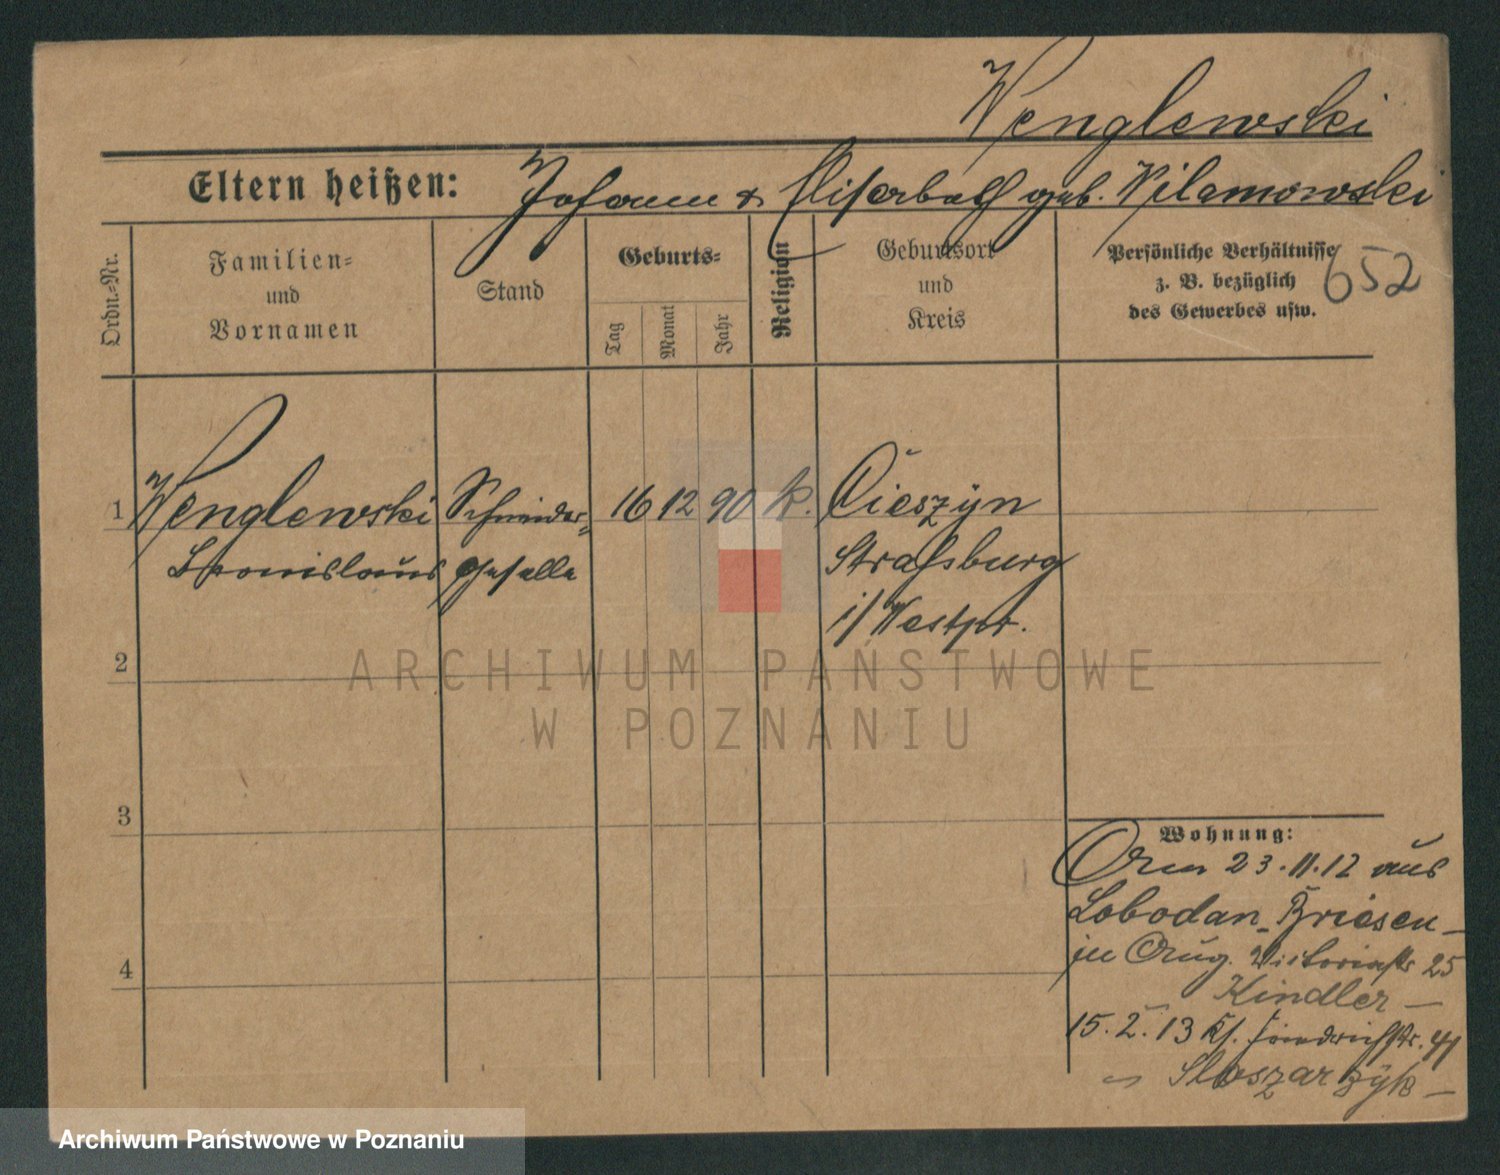 Wenglewski
Eltern heißen: Johann & Elisabeth geb. Wilamowski
Ordn.-Nr.
Familien-
und
Vornamen
Stand
Geburts-
Tag
Monat
Jahr
Religion
Geburtsort
und
Kreis
Persönliche Verhältnisse
z. B. bezüglich
des Gewerbes usw.
652
1 Wenglewski Schneider- 16 12 90 k. Cieszyn
Bronislaus geselle Straßburg
i/ Westpr.
2
ARCHIWUM PAŃSTWOWE
W POZNANIU
3
4
Wohnung:
23.11.12 aus
Lobodan Briesen
in Viktoriastr 25
Kindler
15.2.13 Friedrichstr.
Sloszarzyk
Archiwum Państwowe w Poznaniu